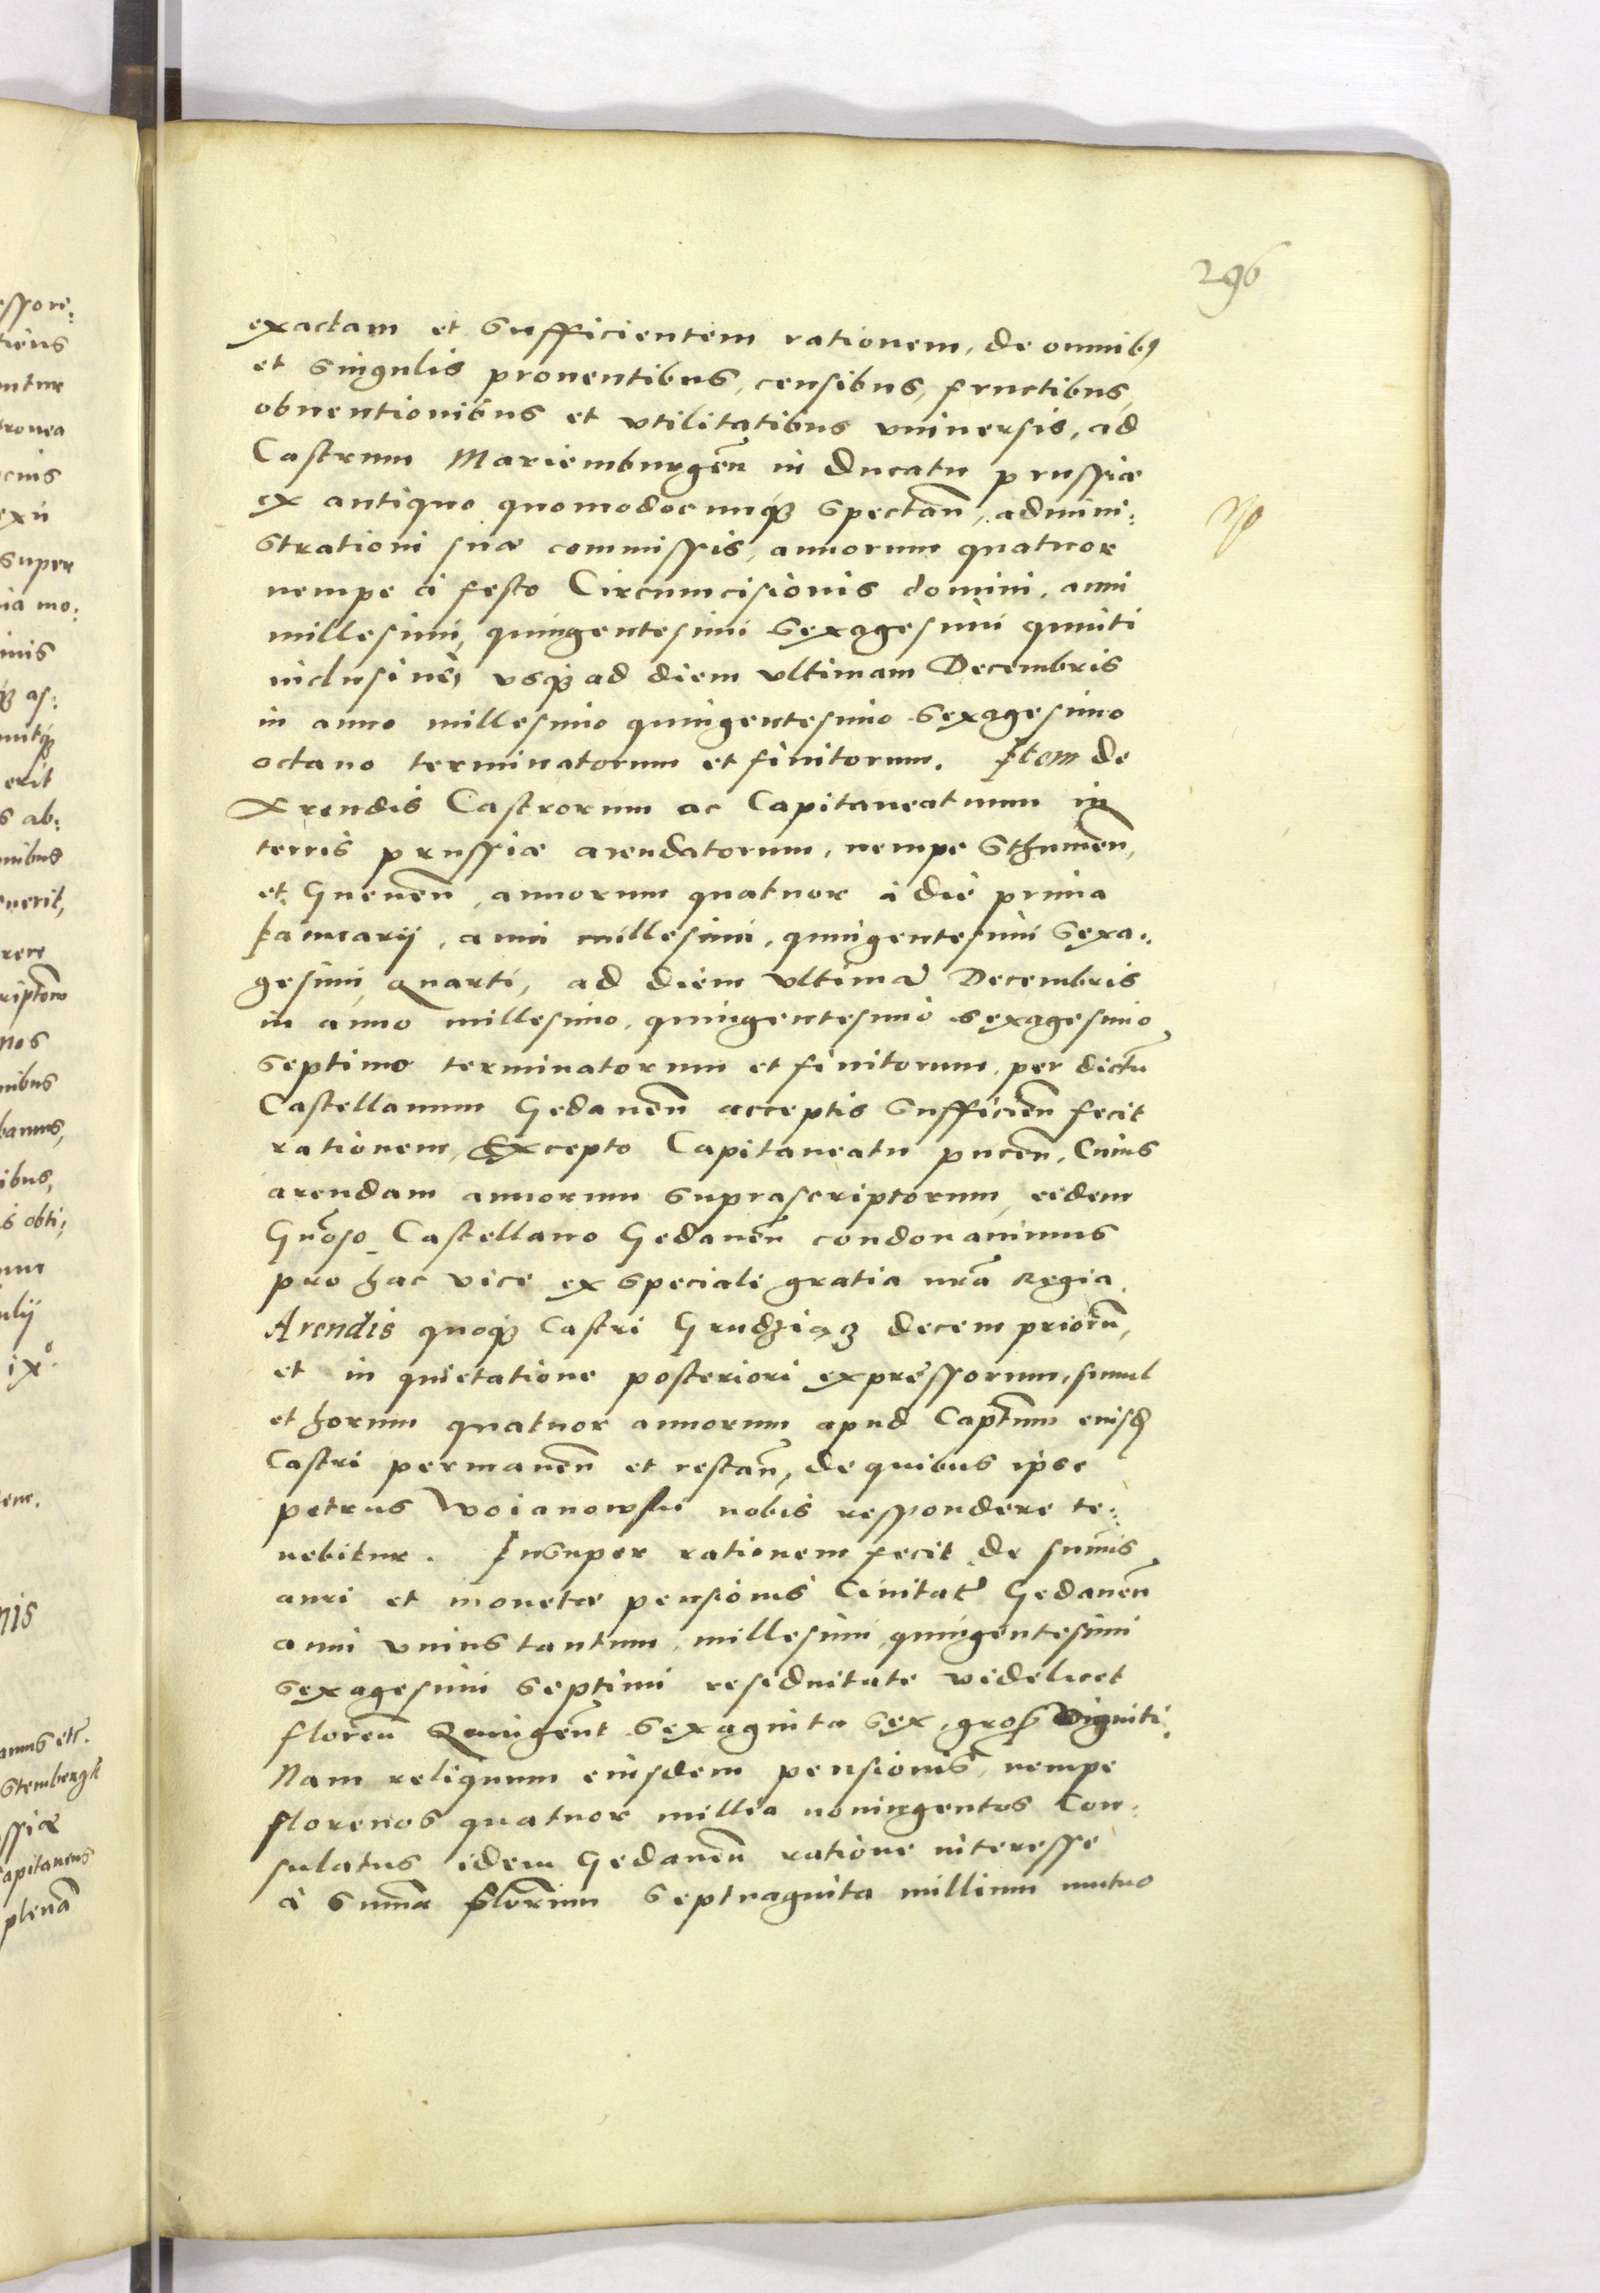 296
exactam et sufficientem rationem, de omnibꝰ
et singulis prouentibus, censibus, fructibus,
obuentionibus et vtilitatibus vniuersis, ad
Castrum Mariemburgeñ in Ducatu prussiæ
ex antiquo quomodocunqꝫ spectañ, admini:
strationi suæ commissis, annorum quatuor
nempe à festo Circumcisionis domini, anni
millesimi, quingentesimi sexagesimi quinti
inclusiuè, vsqꝫ ad diem vltimam Decembris
in anno millesimo quingentesimo sexagesimo
octauo terminatorum et finitorum. Item de
Arendis Castrorum ac Capitaneatuum in
terris prussiæ arendatorum, nempe Sthumeñ,
et Gneueñ, annorum quatuor à die prima
Januarij, anni millesimi, quingentesimi sexa:
gesimi quarti, ad diem vltimã Decembris
in anno millesimo, quingentesimo sexagesimo
septimo terminatorum et finitorum, per dictũ
Castellanum Gedaneñ acceptis sufficieñ fecit
rationem, Excepto Capitaneatu puceñ, Cuius
arendam annorum suprascriptorum, eidem
Gñoso Castellano Gedaneñ condonauimus
pro hac vice ex speciali gratia nr̃a Regia.
Arendis quoqꝫ Castri Grudziącz decem priorũ,
et in quietatione posteriori expressorum, simul
et horum quatuor annorum apud Captũm eiusd
Castri permaneñ et restañ, de quibus ipse
petrus Woianowski nobis respondere te:
nebitur. Insuper rationem fecit de sum̃is
auri et monetæ pensionis Ciuitat̃ Gedaneñ
anni vnius tantum, millesimi, quingentesimi
sexagesimi septimi residuitate videlicet
floreñ Quingent̃ sexaginta sex, gros̃ viginti.
Nam reliquum eiusdem pensionis, nempe
florenos quatuor millia noningentos Con:
sulatus idem Gedaneñ ratione interesse
à sum̃a floreñum septuaginta millium mutuo